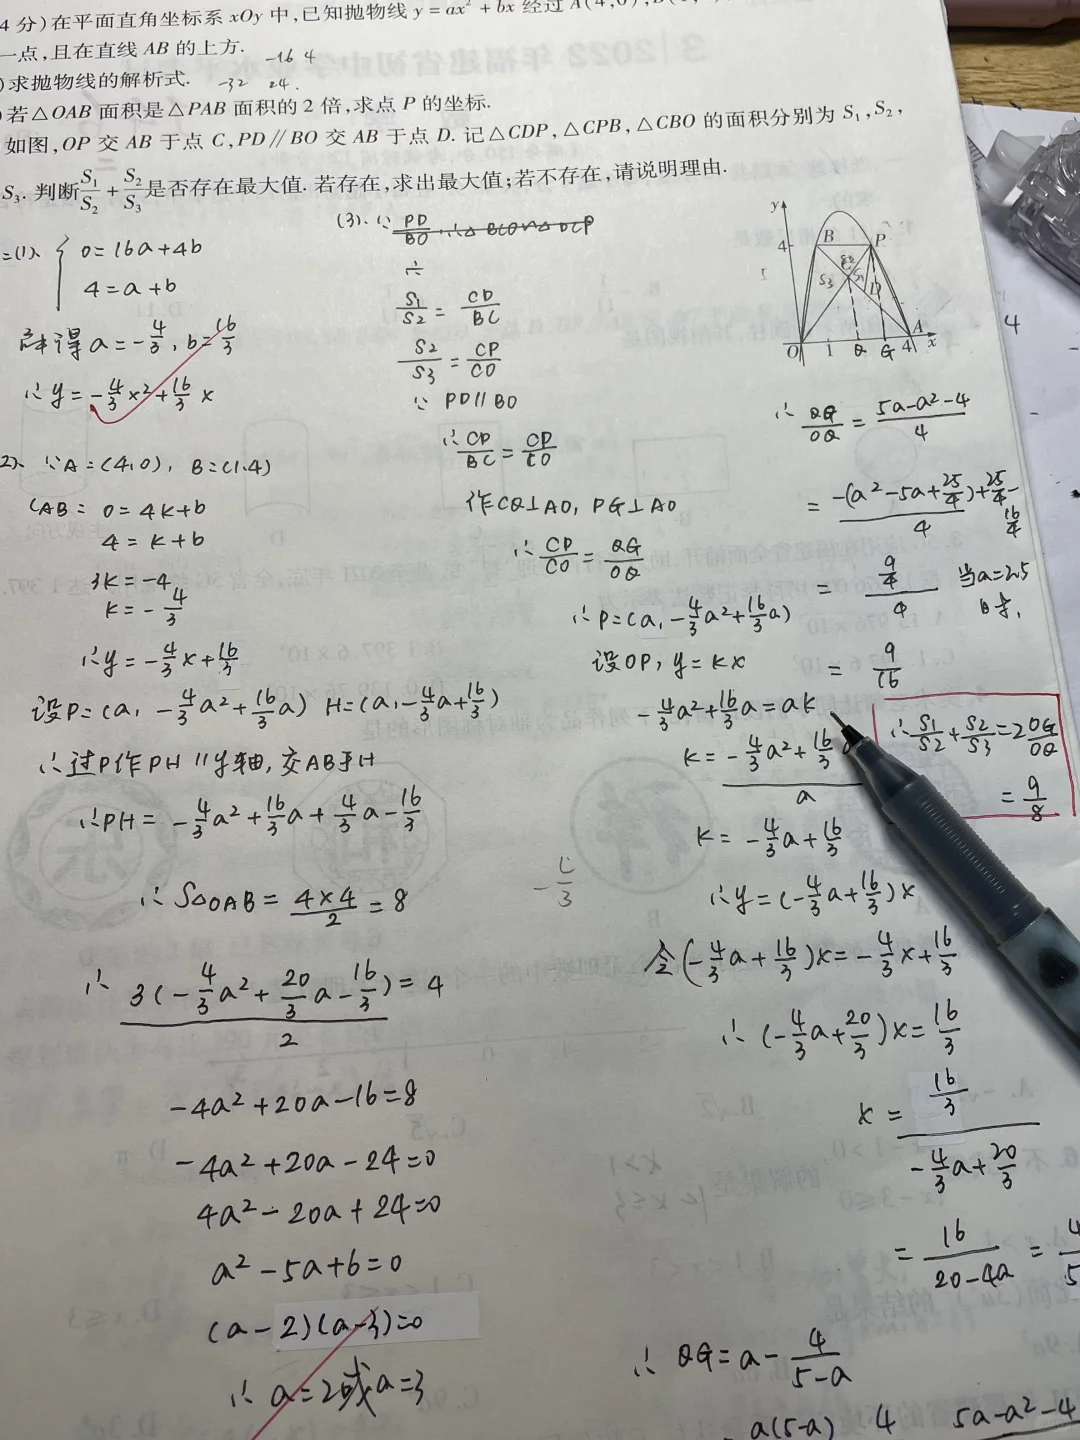 4 分)在平面直角坐标系 xOy 中,已知抛物线 y = ax² + bx 经过 A(4,0),
一点,且在直线 AB 的上方.
-16 4
)求抛物线的解析式.
-32 24.
)若△OAB 面积是△PAB 面积的 2 倍,求点 P 的坐标.
如图,OP 交 AB 于点 C,PD∥BO 交 AB 于点 D. 记△CDP,△CPB,△CBO 的面积分别为 S₁,S₂,
S₃. 判断S₁/S₂+S₂/S₃是否存在最大值. 若存在,求出最大值;若不存在,请说明理由.
=(1)、{ 0=16a+4b
4=a+b
解得 a=-4/3, b=16/3
∴ y=-4/3x²+16/3x
2)、∵A=(4,0), B=(1,4)
LAB: 0=4k+b
4=k+b
3k=-4
k=-4/3
∴y=-4/3x+16/3
设P=(a, -4/3a²+16/3a) H=(a,-4/3a+16/3)
∴过P作PH∥y轴,交AB于H
∴PH=-4/3a²+16/3a+4/3a-16/3
∴S△OAB=4×4/2=8
∴ 3(-4/3a²+20/3a-16/3)/2=4
-4a²+20a-16=8
-4a²+20a-24=0
4a²-20a+24=0
a²-5a+6=0
(a-2)(a-3)=0
∴a=2或a=3
(3)、∵ PD/BO, ∴△BCO∽△DCP
S₁/S₂=CD/BC
S₂/S₃=CP/CO
∵ PD∥BO
∴CD/BC=CP/CO
作CQ⊥AO, PG⊥AO
∴CP/CO=QG/OQ
∴P=(a, -4/3a²+16/3a)
设OP, y=kx
-4/3a²+16/3a=ak
k=-4/3a²+16/3 /a
k=-4/3a+16/3
∴y=(-4/3a+16/3)x
令(-4/3a+16/3)x=-4/3x+16/3
∴(-4/3a+20/3)x=16/3
x=16/3 / -4/3a+20/3
=16/20-4a=4/5
∴QG=a-4/5-a
a(5-a) 4 5a-a²-4
y
4
B
P
S₂
C
S₃
S₁
D
O
1
Q
G
4
A
x
4
∴QG/OQ=5a-a²-4/4
=-(a²-5a+25/4)+25/4-16/4 /4
=9/4 /4 当a=2.5时,
=9/16
∴S₁/S₂+S₂/S₃=2QG/OQ
=9/8